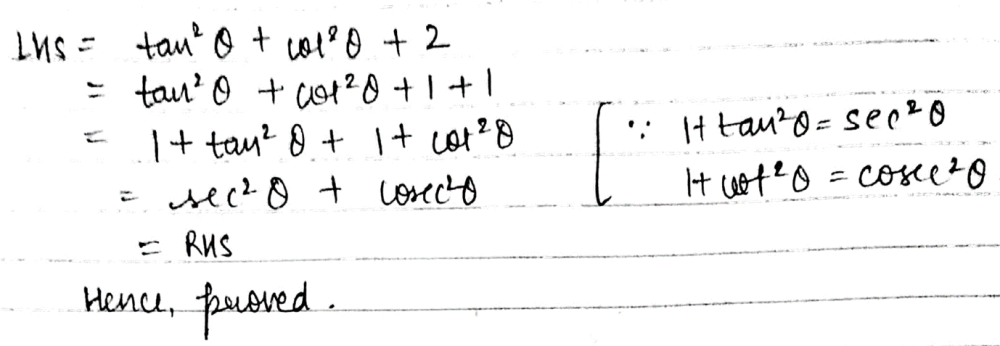 LHS = tan² θ + cot² θ + 2
= tan² θ + cot² θ + 1 + 1
= 1 + tan² θ + 1 + cot² θ [∵ 1 + tan² θ = sec² θ
= sec² θ + cosec² θ 1 + cot² θ = cosec² θ
= RHS
Hence, proved.